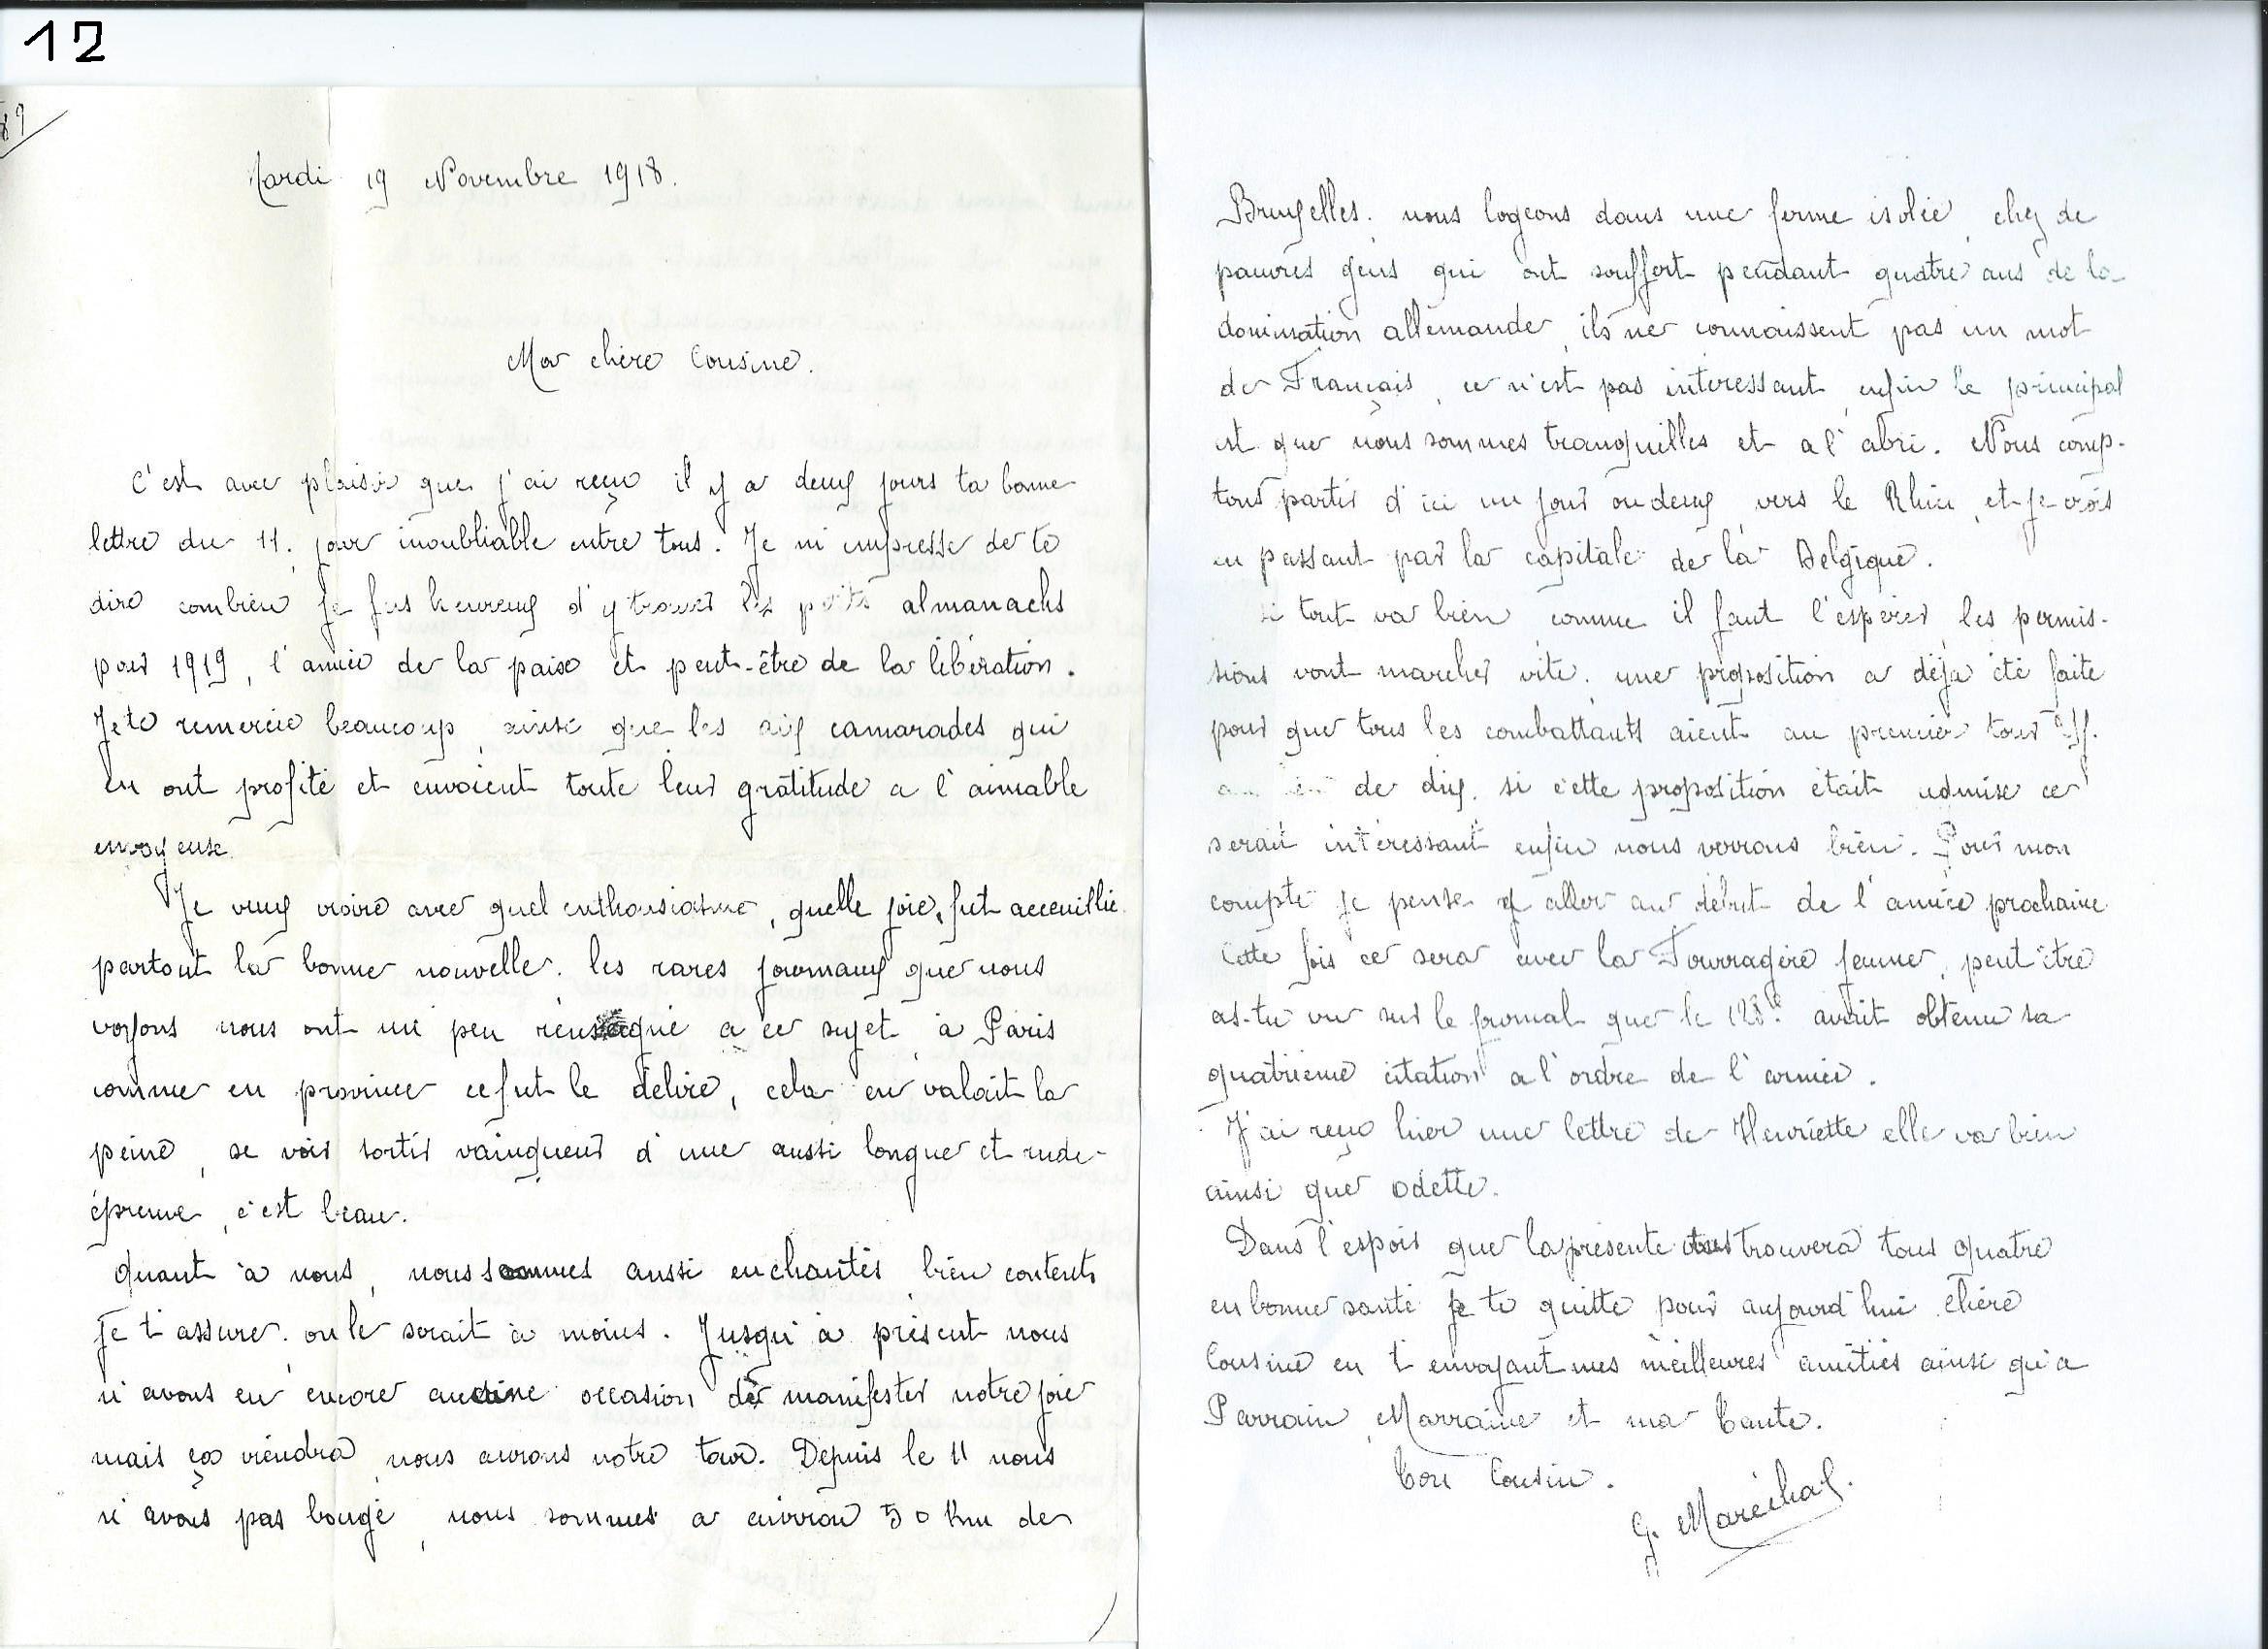 12
89
Mardi 19 Novembre 1918.
Ma chère Cousine.
C'est avec plaisir que j'ai reçu il y a deux jours ta bonne
lettre du 11. jour inoubliable entre tous. Je m'empresse de te
dire combien je fus heureux d'y trouver les petits almanachs
pour 1919, l'année de la paix et peut-être de la libération.
Je te remercie beaucoup, ainsi que les six camarades qui
en ont profité et envoient toute leur gratitude a l'aimable
envoyeuse.
Je veux croire avec quel enthousiasme, quelle joie, fut acceuillie
partout la bonne nouvelle. les rares journaux que nous
voyons nous ont un peu renseigné a ce sujet, à Paris
comme en province ce fut le délire, cela en valait la
peine, se voir sortir vainqueur d'une aussi longue et rude
épreuve, c'est beau.
Quant à nous, nous sommes aussi enchantés, bien contents
je t'assure. on le serait à moins. Jusqu'à présent nous
n'avons eu encore aucune occasion de manifester notre joie
mais ça viendra, nous aurons notre tour. Depuis le 11 nous
n'avons pas bougé, nous sommes a environ 50 Km de
Bruxelles. nous logeons dans une ferme isolée, chez de
pauvres gens qui ont souffert pendant quatre ans de la
domination allemande, ils ne connaissent pas un mot
de Français, ce n'est pas intéressant, enfin le principal
est que nous sommes tranquilles et a l'abri. Nous comp-
tons partir d'ici un jour ou deux, vers le Rhin, et je crois
en passant par la capitale de la Belgique.
si tout va bien, comme il faut l'espérer, les permis-
sions vont marcher vite. une proposition a déjà été faite
pour que tous les combattants aient au premier tour
au lieu de dix. si cette proposition était admise ce
serait intéressant enfin nous verrons bien. Pour mon
compte je pense y aller au début de l'année prochaine
Cette fois ce sera avec la Fourragère jaune, peut être
as-tu vu sur le journal que le 128e avait obtenu sa
quatrième citation a l'ordre de l'armée.
J'ai reçu hier une lettre de Henriette elle va bien
ainsi que Odette.
Dans l'espoir que la présente vous trouvera tous quatre
en bonne santé je te quitte pour aujourd'hui chère
Cousine en t'envoyant mes meilleures amitiés ainsi qu'a
Parrain, Marraine et ma Tante.
Ton Cousin.
G. Maréchal.